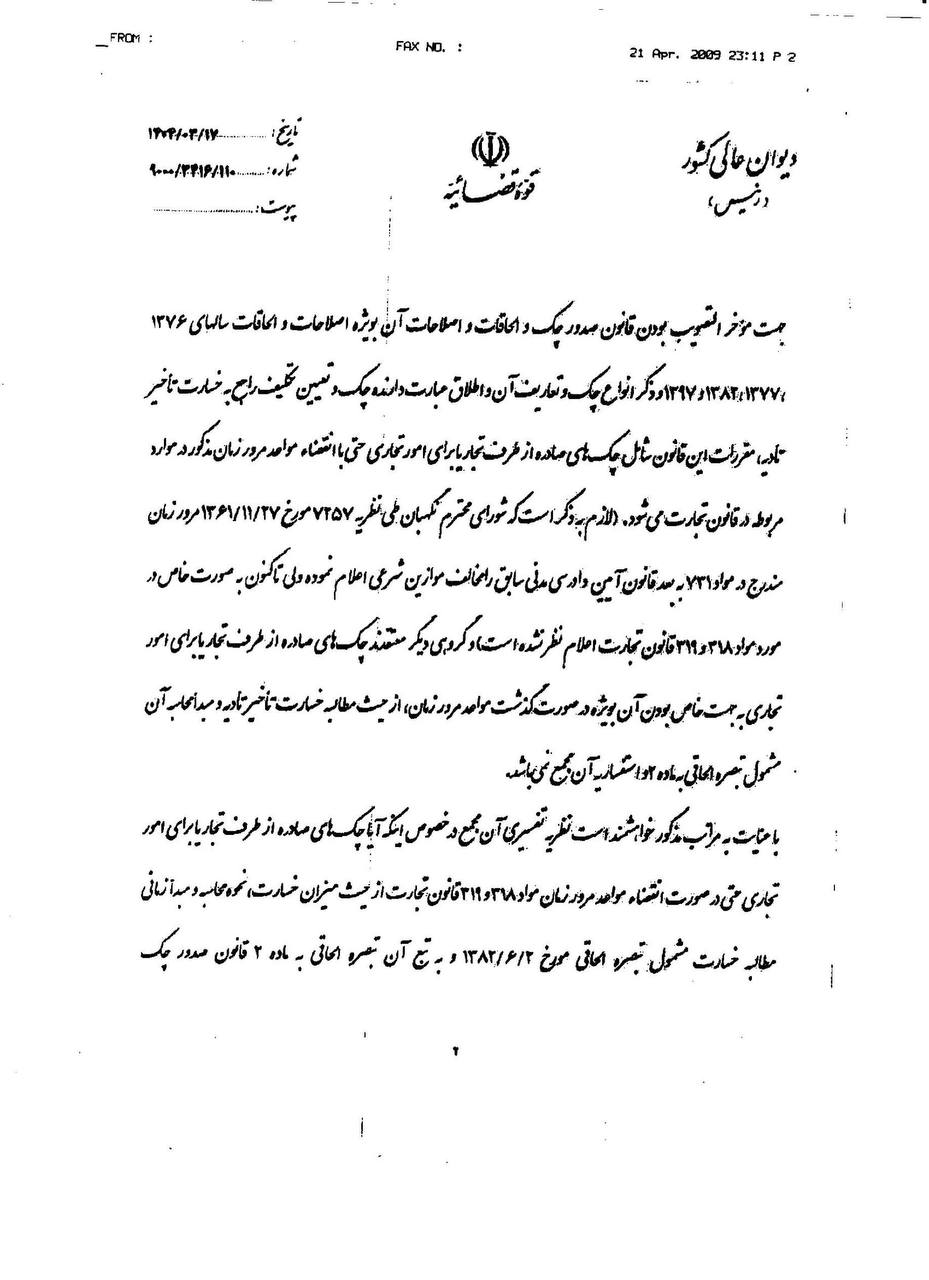 FROM :
FAX NO. :
21 Apr. 2009 23:11 P 2
دیوان عالی کشور
«رئیس»
قوه قضائیه
تاریخ: ۱۴۰۴/۰۳/۱۷
شماره: ۹۰۰۰/۳۴۱۶/۱۱۰
پیوست:
جهت مؤخر التصویب بودن قانون صدور چک و الحاقات و اصلاحات آن بویژه اصلاحات و الحاقات سالهای ۱۳۷۶
،۱۳۷۷، ۱۳۸۲ و ۱۳۹۷ و ذکر انواع چک و تعاریف آن و اطلاق عبارت دارنده چک و تعیین تکلیف راجع به خسارت تأخیر
تادیه، مقررات این قانون شامل چک‌های صادره از طرف تجار یا برای امور تجاری حتی با انقضاء مواعد مرور زمان مذکور در موارد
مربوطه در قانون تجارت می‌شود. (لازم به ذکر است که شورای محترم نگهبان طی نظریه ۷۲۵۷ مورخ ۱۳۶۱/۱۱/۲۷ مرور زمان
مندرج در مواد ۷۳۱ به بعد قانون آیین دادرسی مدنی سابق را مخالف موازین شرعی اعلام نموده ولی تاکنون به صورت خاص در
مورد مواد ۳۱۸ و ۳۱۹ قانون تجارت اعلام نظر نشده است) و گروهی دیگر معتقدند چک‌های صادره از طرف تجار یا برای امور
تجاری به جهت خاص بودن آن بویژه در صورت گذشت مواعد مرور زمان، از حیث مطالبه خسارت تأخیر تادیه و مبدأ محاسبه آن
مشمول تبصره الحاقی به ماده ۲ و استفساریه آن مجمع نمی‌باشد.
با عنایت به مراتب مذکور خواهشمند است نظریه تفسیری آن مجمع در خصوص اینکه آیا چک‌های صادره از طرف تجار یا برای امور
تجاری حتی در صورت انقضاء مواعد مرور زمان مواد ۳۱۸ و ۳۱۹ قانون تجارت از حیث میزان خسارت، نحوه محاسبه و مبدأ زمانی
مطالبه خسارت مشمول تبصره الحاقی مورخ ۱۳۸۲/۶/۲ و به تبع آن تبصره الحاقی به ماده ۲ قانون صدور چک
۲